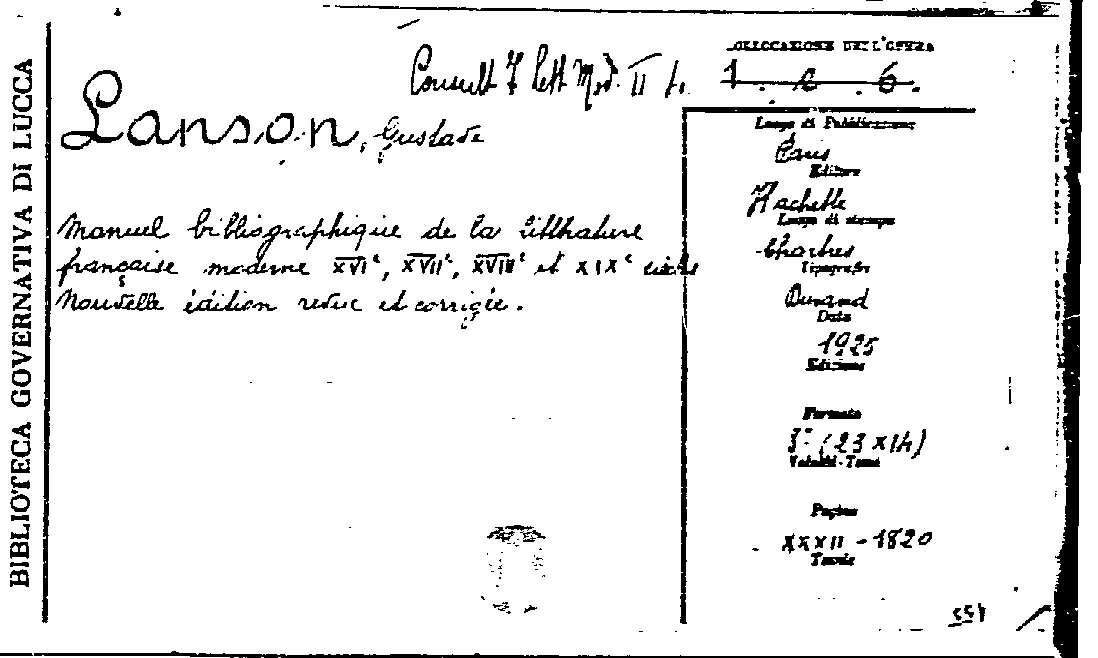 BIBLIOTECA GOVERNATIVA DI LUCCA
Consult F Lett Mod. II
COLLOCAZIONE DELL'OPERA
1. c. 6.
Lanson, Gustave
Manuel bibliographique de la littérature
française moderne XVIᵉ, XVIIᵉ, XVIIIᵉ et XIXᵉ siècles
Nouvelle édition revue et corrigée.
Luogo di Pubblicazione
Paris
Editore
Hachette
Luogo di stampa
Chartres
Tipografo
Durand
Data
1925
Edizione
Formato
8° (23x14)
Volumi-Tomi
Pagine
XXXII-1820
Tavole